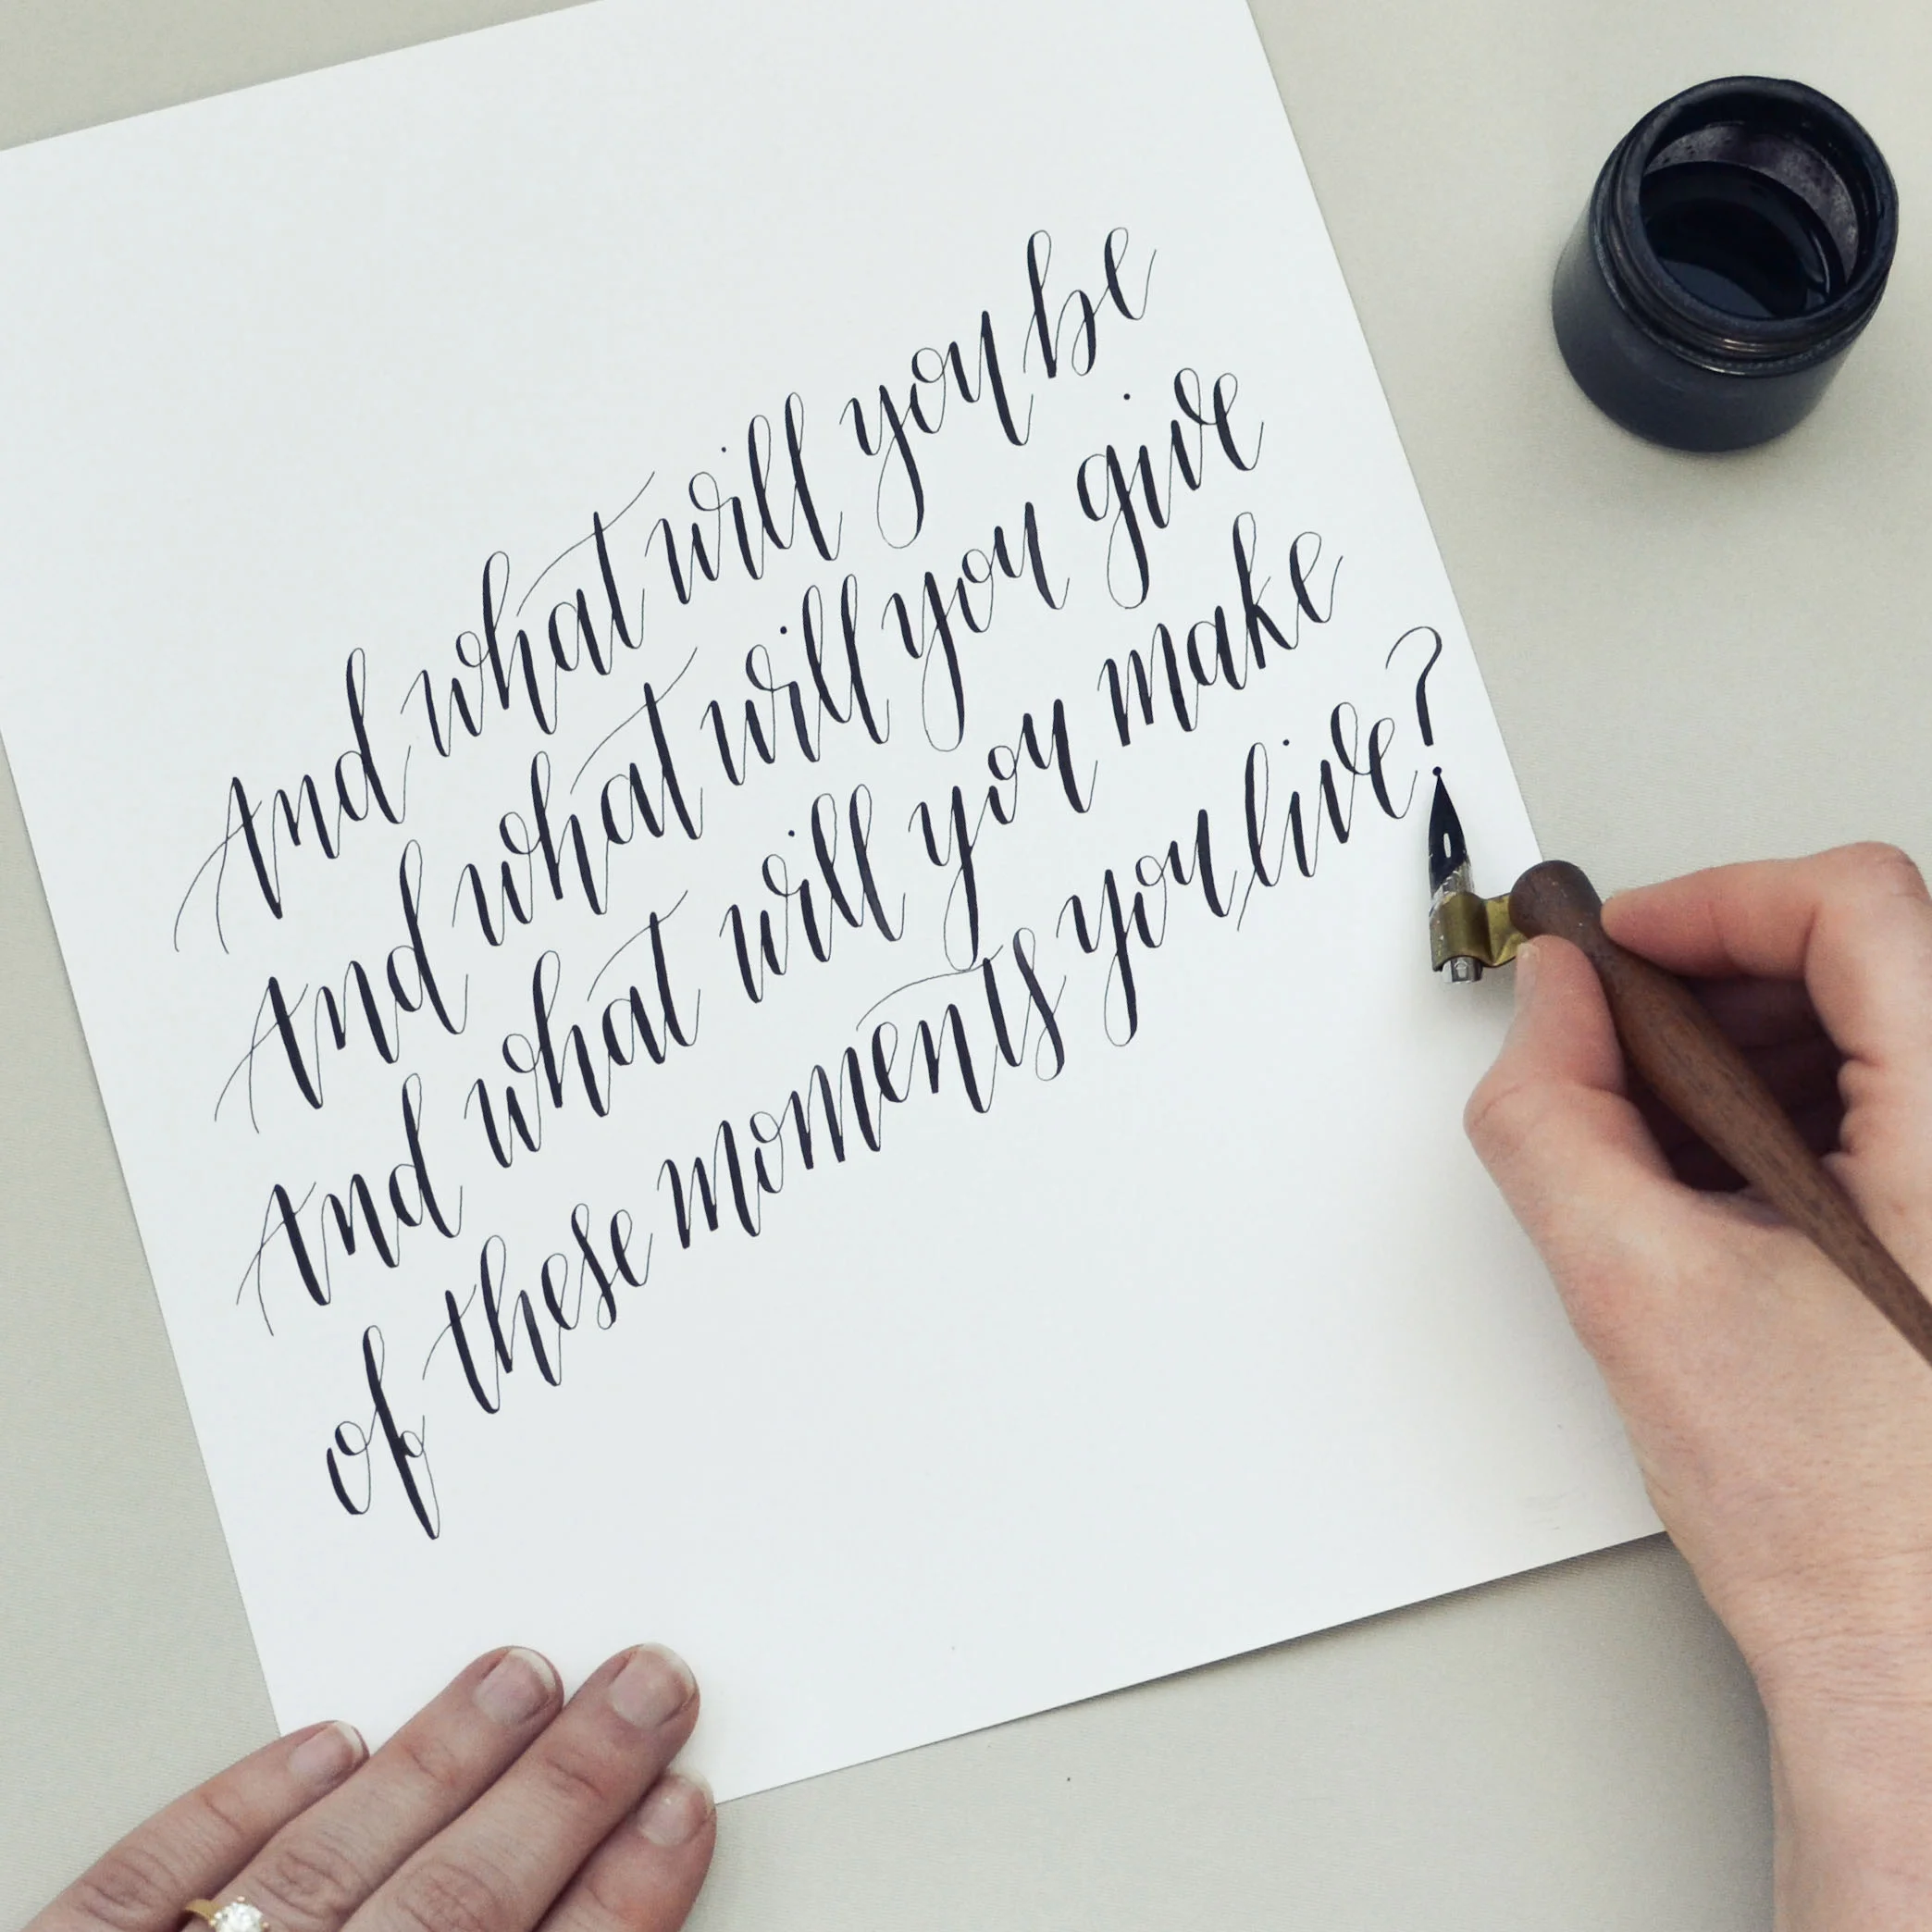 And what will you be
And what will you give
And what will you make
of these moments you live?